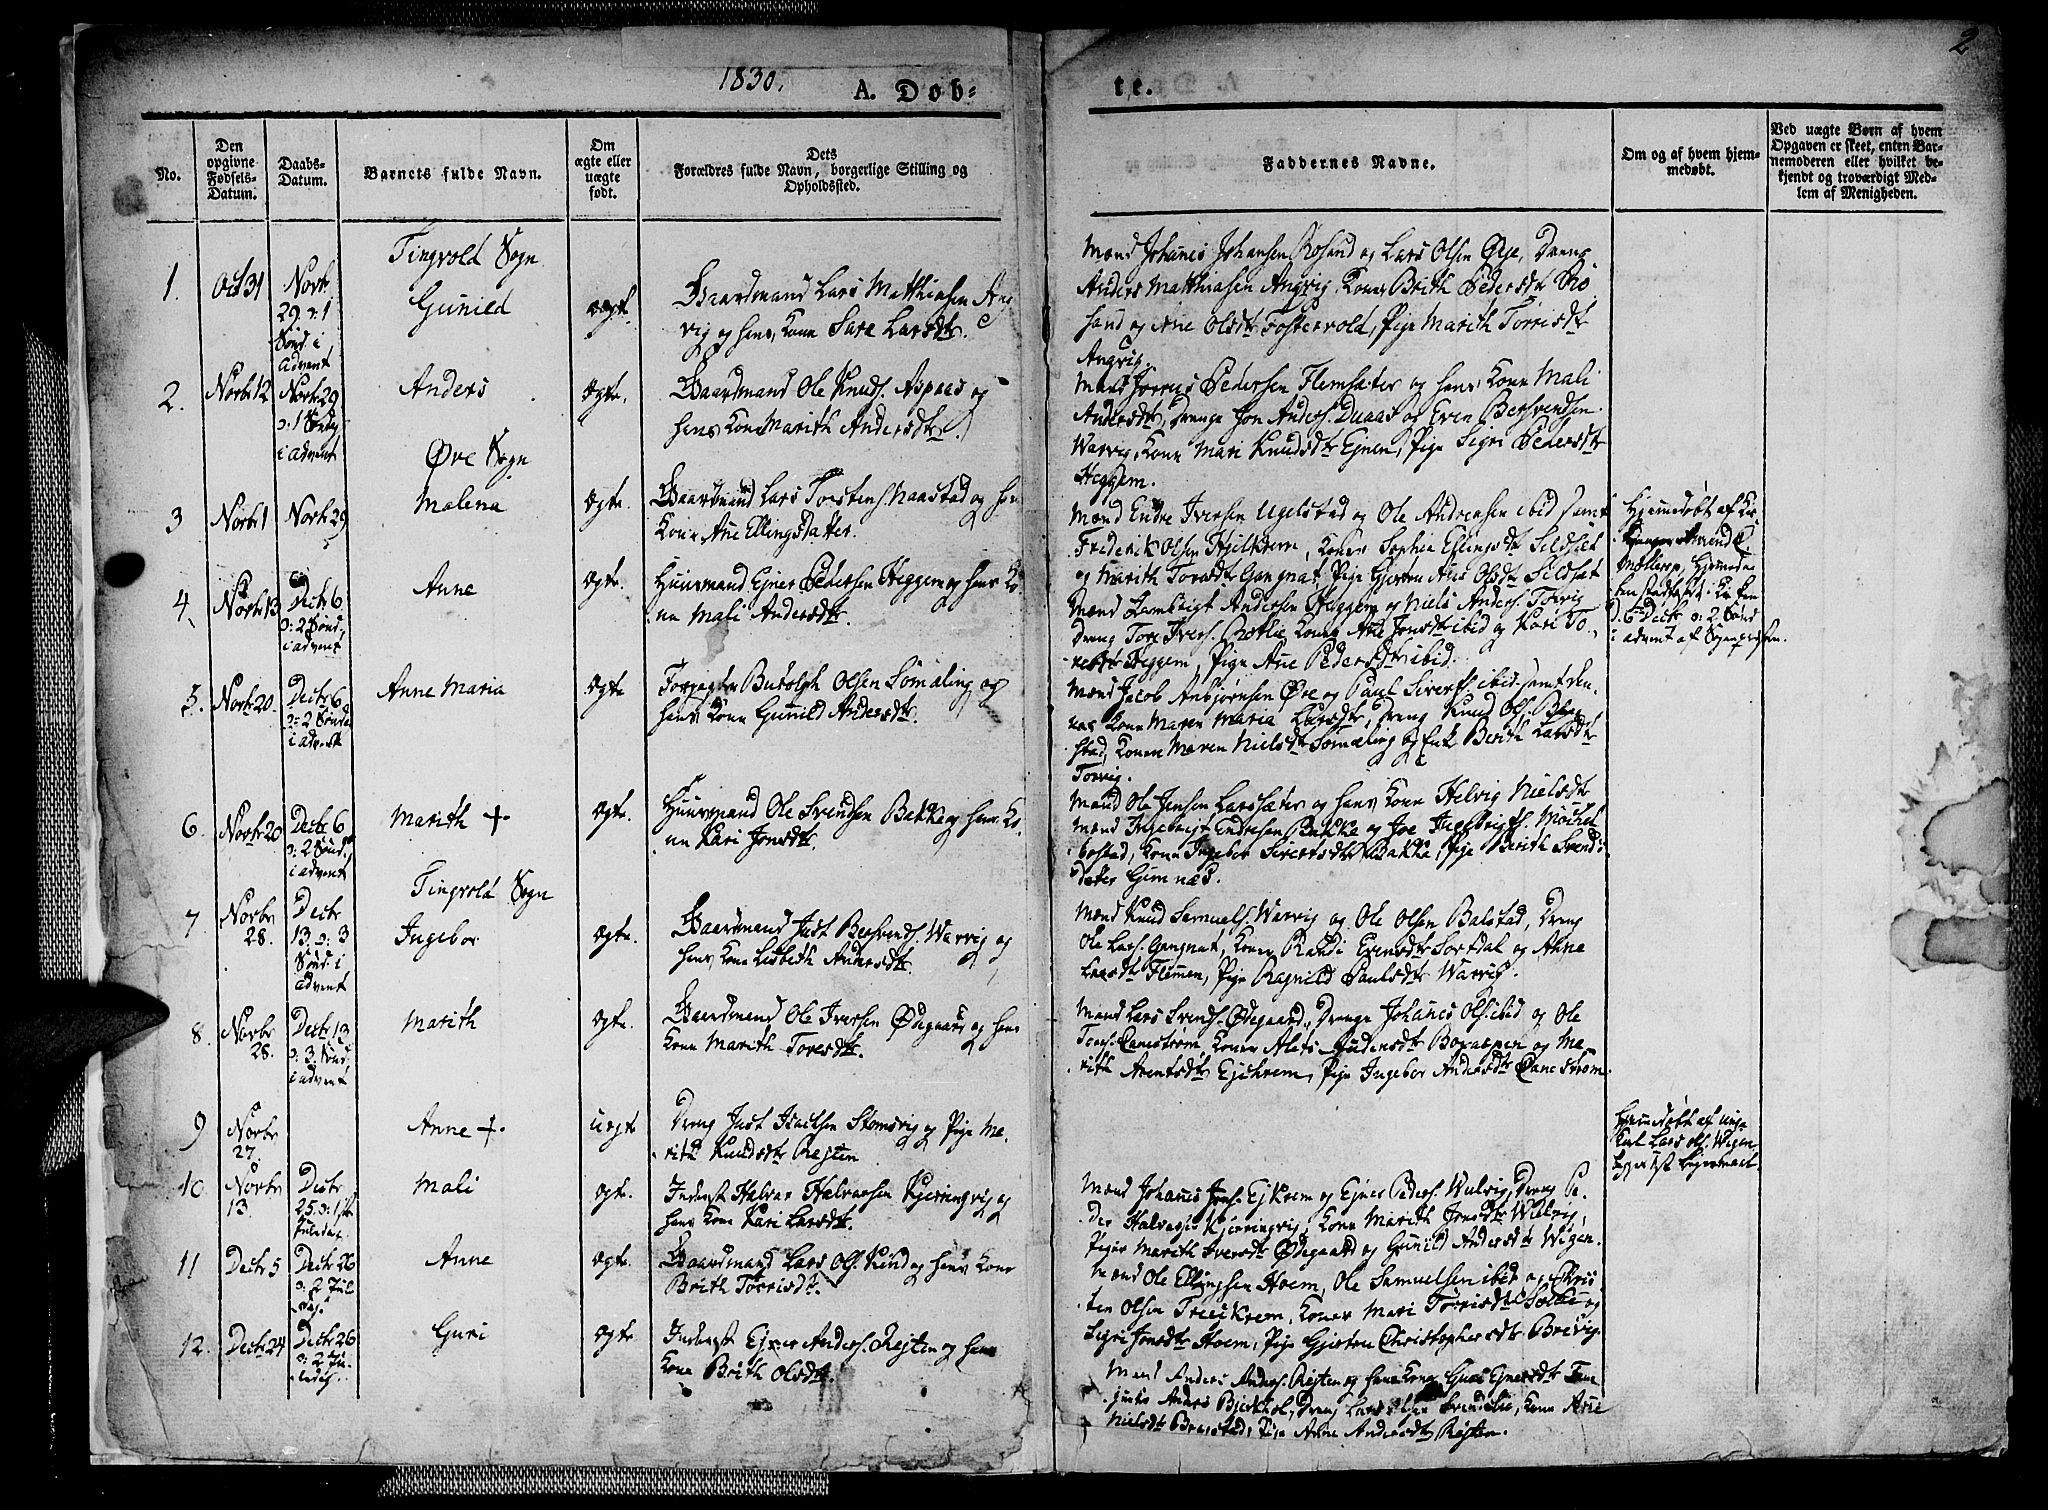 2
1830.
A. Døb-
te.
No.
Den
opgivne
Fødsels-
Datum.
Daabs-
Datum.
Barnets fulde Navn.
Om
ægte eller
uægte
født.
Dets
Forældres fulde Navn, borgerlige Stilling og
Opholdssted.
Faddernes Navne.
Om og af hvem hjem-
medøbt.
Ved uægte Børn af hvem
Opgaven er skeet, enten Bar-
nemoderen eller hvilket be-
kjendt og troværdigt Med-
lem af Menigheden.
Tingvold Sogn
1.
Oct 31
Novbr
29 ɔ: 1
Sønd. i
Advent
Gunild
Ægte.
Gaardmand Lars Matthiasen Ang
vig og hans Kone Sare Larsdtr.
Mænd Johanes Johansen Rosand og Lars Olsen Øye, Dreng
Anders Matthiasen Angvig, Koner Brith Pedersdtr Ro
sand og Ane Olsdtr Fostervold, Pige Marith Torrisdtr
Angvig.
2.
Novbr 12
Novbr 29
ɔ: 1 Søndag
i Advent
Anders
Ægte.
Gaardmand Ole Knuds. Aspaas og
hans Kone Marith Andersdtr.
Pedersen Flemsæter og hans Kone Mali
Andersdtr, Drenge Jon Anders. Duaas og Even Bersvendsen
Warvig, Kone Mari Knudsdtr Ejnen, Pige Sigri Pedersdtr
Heggem.
Øre Sogn
3
Novbr 1
Novbr 29
Malena
Ægte.
Gaardmand Lars Torstens. Naastad og hans
Kone Ane Ellingsdatter.
Mænd Endre Iversen Ugelstad og Ole Andreasen ibid samt
Frederik Olsen Hjelkrem, Koner Sophia Ellingsdtr Sildset
og Marith Toresdtr Gangnat, Pige Gjerten Ane Olsdtr Sildset
Hjemmedøbt af
Møllerop, Hjemmedaa
ben stadfæstet i Kirken
d. 6te Decbr ɔ: 2 Sønd.
i advent af Sognepresten.
4.
Novbr 13
Decbr 6
ɔ: 2 Sønd.
i Advent
Anne
Ægte.
Huusmand Ejner Pedersen Heggem og hans Ko
ne Mali Andersdtr.
Mænd Andersen Heggem og Niels Anders. Torvig
Dreng Tore Ivers. Koner Ane Jonsdtr ibid og Kari To
resdtr Heggem, Pige Ane Pedersdtr ibid.
5.
Novbr 20
Decbr 6
ɔ: 2 Sønd.
i Advent
Anne Maria
Ægte
Forpagter Budolph Olsen Sømaling og
hans Kone Gunild Andersdtr.
Mænd Jacob Anbjørnsen Øre og Paul Sivers. ibid samt den-
nes Kone Maren Maria Larsdtr, Dreng Knud Ols.
stad, Koner Maren Nielsdtr Sømaling og Enke Berith Larsdtr
Torvig.
6.
Novbr 20
Decbr 6
ɔ: 2 Sønd.
i Advent
Marith +
Ægte.
Huusmand Ole Svendsen Bakke og hans Ko-
ne Kari Jonsdtr.
Mænd Ole Jensen Larssæter og hans Kone Helvig Nielsdtr
Mænd Ingebrigt Endresen Bakke og Joe Ingebrigts. Møchel
bostad, Kone Ingebor Siversdtr Bakke, Pige Berith Svends
datter Gimnæs.
Tingvold Sogn
7.
Novbr
28.
Decbr
13. ɔ: 3
Sønd. i
Advent
Ingebor
Ægte.
Gaardmand Just Bersvends. Warvig og
hans Kone Lisbeth Andersdtr.
Mænd Knud Samuels. Warvig og Ole Olsen Balstad, Dreng
Ole Lars. Gangnat, Koner Randi Evensdtr Sordal og Anne
Larsdtr Flemmen, Pige Ragnild Paulsdtr Warvig.
8.
Novbr
28.
Decbr 13
ɔ: 3 Sønd.
i Advent
Marith
Ægte.
Gaardmand Ole Iversen Ødegaard og hans
Kone Marith Toresdtr.
Mænd Lars Svends. Ødegaard, Drenge Johanes Ols. ibid og Ole
Tores. Canestrøm Koner Alets Audensdtr Boraspen og Ma
rith Arentsdtr Ejekrem, Pige Ingebor Andersdtr Canestrøm.
9
Novbr
27.
Anne +
uægte
Dreng Just Isachsen Stomsvig og Pige Ma-
rith Knudsdtr Rejten
Hjemmedøbt af unge
Karl Lars Ols. Wigen
10
Novbr
13.
Decbr
25. ɔ: 1ste
Juledag.
Mali
Ægte.
Inderst Halvar Halvarsen Kjerringvig og
hans Kone Kari Larsdtr.
Mænd Johanes Jons. Ejkrem og Ejner Peders. Wulvig, Dreng Pe-
der Halvars. Kjerringvig, Kone Marith Jonsdtr Wulvig,
Piger Marith Iversdtr Ødegaard og Gunild Andersdtr Wigen.
11
Decbr 5
Decbr 26
ɔ: 2 Jul
dag.
Anne
Ægte.
Gaardmand Lars Ols. Kind og hans Kone
Brith Torrisdtr.
Mænd Ole Ellingsen Hoem, Ole Samuelsen ibid og
Olsen Treeekrem, Koner Mari Torrisdtr og
Sigri Jonsdtr Hoem, Pige Gjerten Christophersdtr Brevig.
12.
Decbr 24
Decbr 26
ɔ: 2 Ju
ledag.
Guri
Ægte.
Inderst Ejner Anders. Rejten og hans
Kone Brith Olsdtr.
Mænd Anders Anders. Rejten og hans Kone Guri Ejnersdtr
Anders Bjerkhol, Dreng Lars Kone Ane
Nielsdtr Bergstad, Pige Anne Andersdtr Rejten.